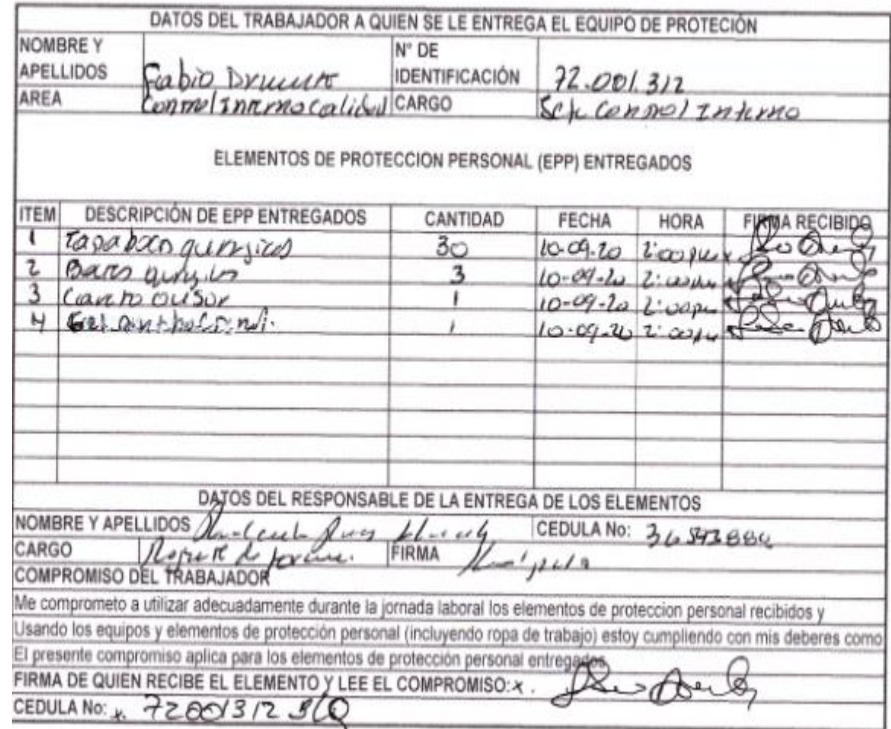 DATOS DEL TRABAJADOR A QUIEN SE LE ENTREGA EL EQUIPO DE PROTECIÓN
NOMBRE Y APELLIDOS Fabio N° DE IDENTIFICACIÓN 72.001.312
AREA Control Interno calidad CARGO Control Interno
ELEMENTOS DE PROTECCION PERSONAL (EPP) ENTREGADOS
ITEM DESCRIPCIÓN DE EPP ENTREGADOS CANTIDAD FECHA HORA FIRMA RECIBIDO
1 Tapabocas 30 10-09-20 2:00 pm
2 3 10-09-20 2:00 pm
3 1 10-09-20 2:00 pm
4 Gel 1 10-09-20 2:00 pm
DATOS DEL RESPONSABLE DE LA ENTREGA DE LOS ELEMENTOS
NOMBRE Y APELLIDOS CEDULA No:
CARGO FIRMA
COMPROMISO DEL TRABAJADOR
Me comprometo a utilizar adecuadamente durante la jornada laboral los elementos de proteccion personal recibidos y
Usando los equipos y elementos de protección personal (incluyendo ropa de trabajo) estoy cumpliendo con mis deberes como
El presente compromiso aplica para los elementos de protección personal entregados
FIRMA DE QUIEN RECIBE EL ELEMENTO Y LEE EL COMPROMISO: x
CEDULA No: x. 72001312